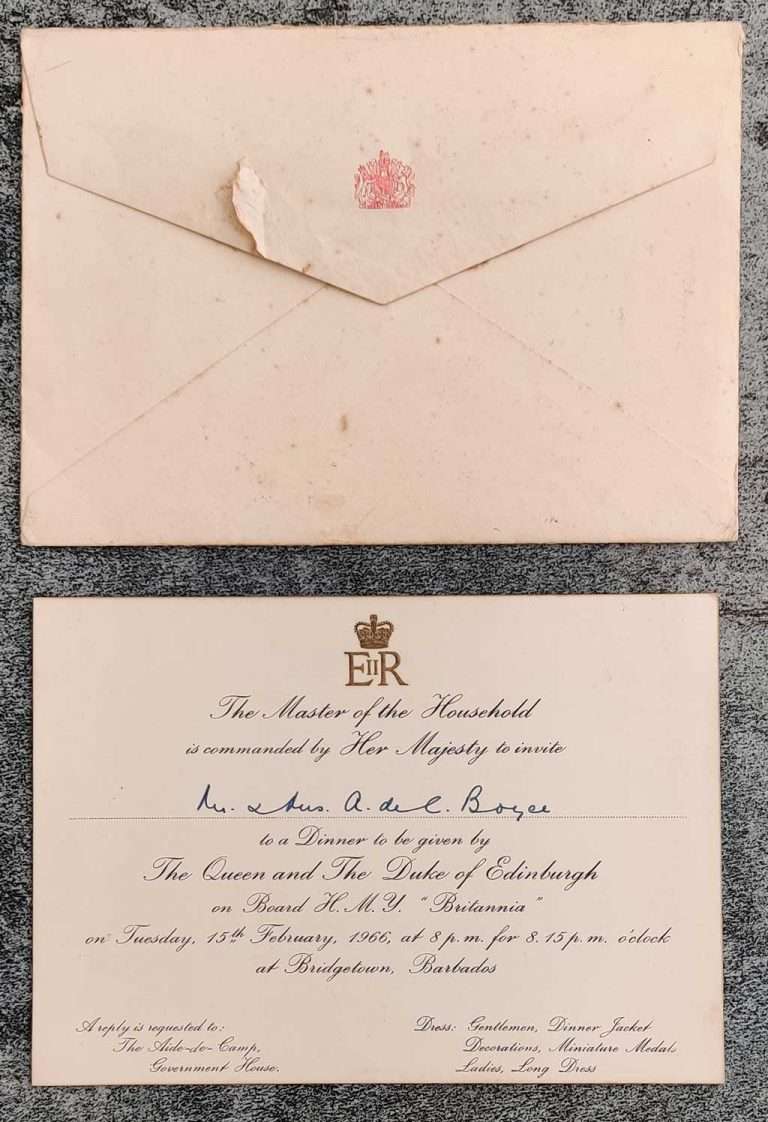 EIIR
The Master of the Household
is commanded by Her Majesty to invite
Mr. & Mrs. A. de C. Boyce
to a Dinner to be given by
The Queen and The Duke of Edinburgh
on Board H.M.Y. "Britannia"
on Tuesday, 15th February, 1966, at 8 p.m. for 8.15 p.m. o'clock
at Bridgetown, Barbados
A reply is requested to:
The Aide-de-Camp,
Government House.
Dress: Gentlemen, Dinner Jacket
Decorations, Miniature Medals
Ladies, Long Dress